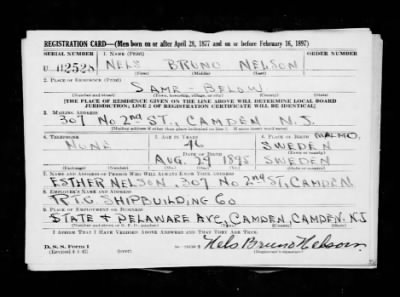 REGISTRATION CARD—(Men born on or after April 28, 1877 and on or before February 16, 1897)
SERIAL NUMBER 1. NAME (Print) ORDER NUMBER
U 2528 NELS BRUNO NELSON
(First) (Middle) (Last)
2. PLACE OF RESIDENCE (Print)
SAME - BELOW
(Number and street) (Town, township, village, or city) (County) (State)
[THE PLACE OF RESIDENCE GIVEN ON THE LINE ABOVE WILL DETERMINE LOCAL BOARD
JURISDICTION; LINE 2 OF REGISTRATION CERTIFICATE WILL BE IDENTICAL]
3. MAILING ADDRESS
307 No 2nd ST., CAMDEN N.J.
[Mailing address if other than place indicated on line 2. If same insert word same]
4. TELEPHONE 5. AGE IN YEARS 6. PLACE OF BIRTH
NONE 46 MALMO,
SWEDEN
DATE OF BIRTH
AUG. 29 1895 SWEDEN
(Exchange) (Number) (Mo.) (Day) (Yr.) (State or country)
7. NAME AND ADDRESS OF PERSON WHO WILL ALWAYS KNOW YOUR ADDRESS
ESTHER NELSON, 307 No 2nd ST, CAMDEN
8. EMPLOYER'S NAME AND ADDRESS
SHIPBUILDING Co
9. PLACE OF EMPLOYMENT OR BUSINESS
STATE + DELAWARE AVE, CAMDEN, CAMDEN. NJ
(Number and street or R. F. D. number) (Town) (County) (State)
I AFFIRM THAT I HAVE VERIFIED ABOVE ANSWERS AND THAT THEY ARE TRUE.
D. S. S. Form 1
(Revised 4-1-42) (over) Nels Bruno Nelson